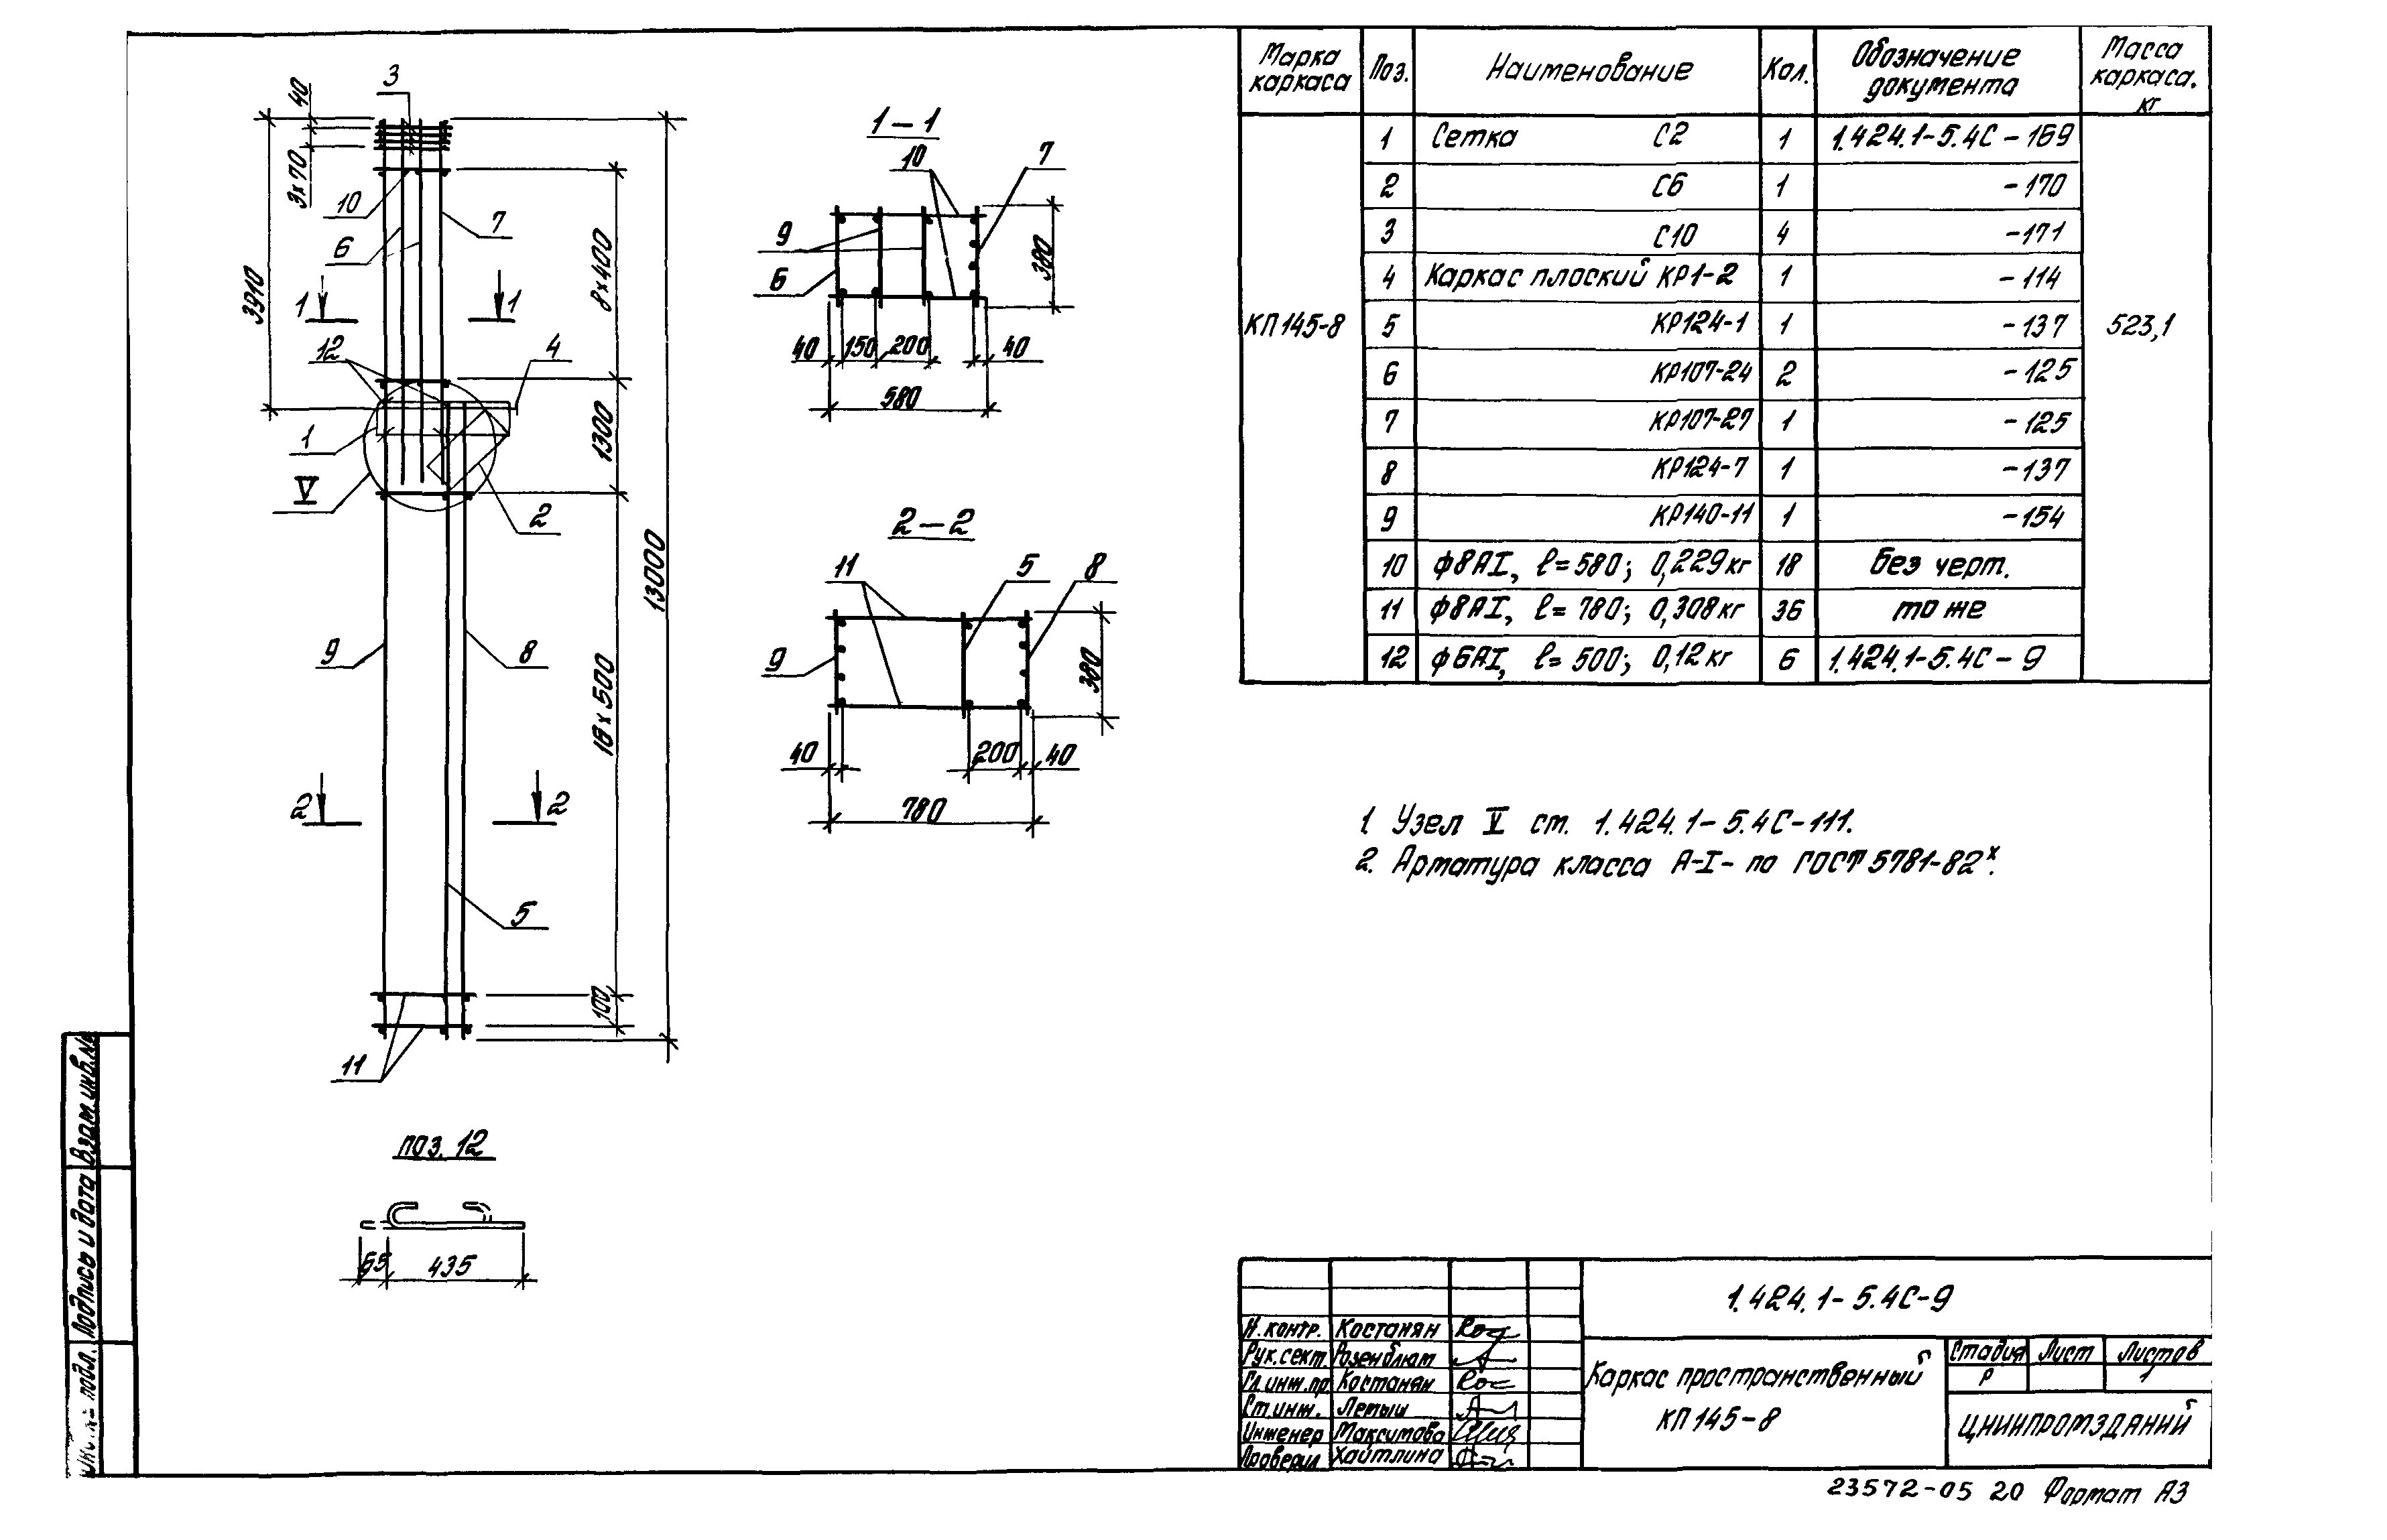 Марка каркаса Поз. Наименование Кол. Обозначение документа Масса каркаса, кг
КП145-8 523,1
1 Сетка С2 1 1.424.1-5.4С-169
2 С6 1 -170
3 С10 4 -171
4 Каркас плоский КР1-2 1 -114
5 КР124-1 1 -137
6 КР107-24 2 -125
7 КР107-27 1 -125
8 КР124-7 1 -137
9 КР140-11 1 -154
10 ф8АI, ℓ=580; 0,229кг 18 без черт.
11 ф8АI, ℓ=780; 0,308кг 36 то же
12 ф6АI, ℓ=500; 0,12кг 6 1.424.1-5.4С-9
3
40
3х70
10
7
6
3910
8х400
1 1
12
4
1
1300
V
2
13000
9
8
18х500
2 2
5
100
11
1-1
10
7
9
6
380
40 150 200 40
580
2-2
11
5
8
9
380
40 200 40
780
поз. 12
65 435
1. Узел V см. 1.424.1-5.4С-111.
2. Арматура класса А-I- по ГОСТ 5781-82х.
Взам.инв.№
Подпись и дата
Инв.№ подл.
1.424.1-5.4С-9
Н.контр. Костанян
Рук.сект. Розенблюм
Гл.инж.пр Костанян
Ст.инж. Летыш
Инженер Максимова
Проверил Хайтлина
Каркас пространственный
КП145-8
Стадия Лист Листов
Р 1
ЦНИИПРОМЗДАНИЙ
23572-05 20 Формат А3